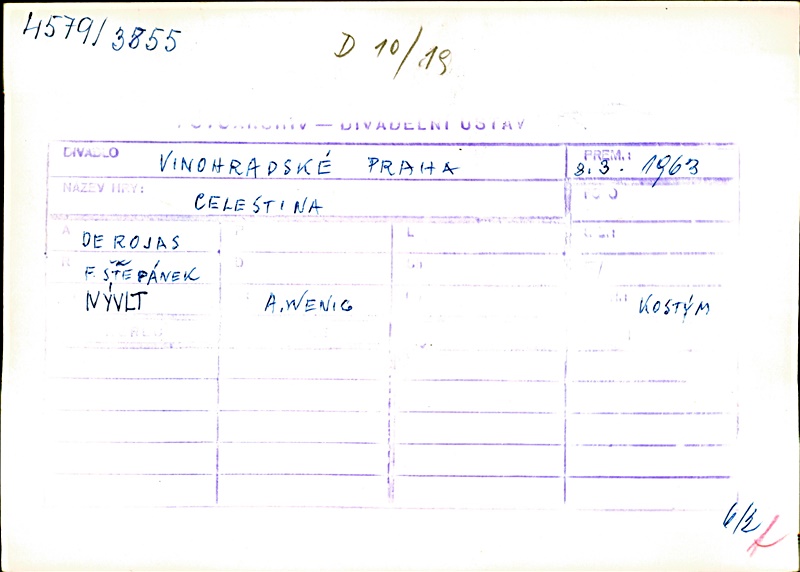 4579/3855
D 10/19
FOTOARCHIV — DIVADELNÍ ÚSTAV
DIVADLO VINOHRADSKÉ PRAHA PREM.: 8. 3. 1963
NÁZEV HRY: CELESTINA FOTO
A DE ROJAS
R F. ŠTĚPÁNEK D
NÝVLT A. WENIG KOSTÝM
6/2